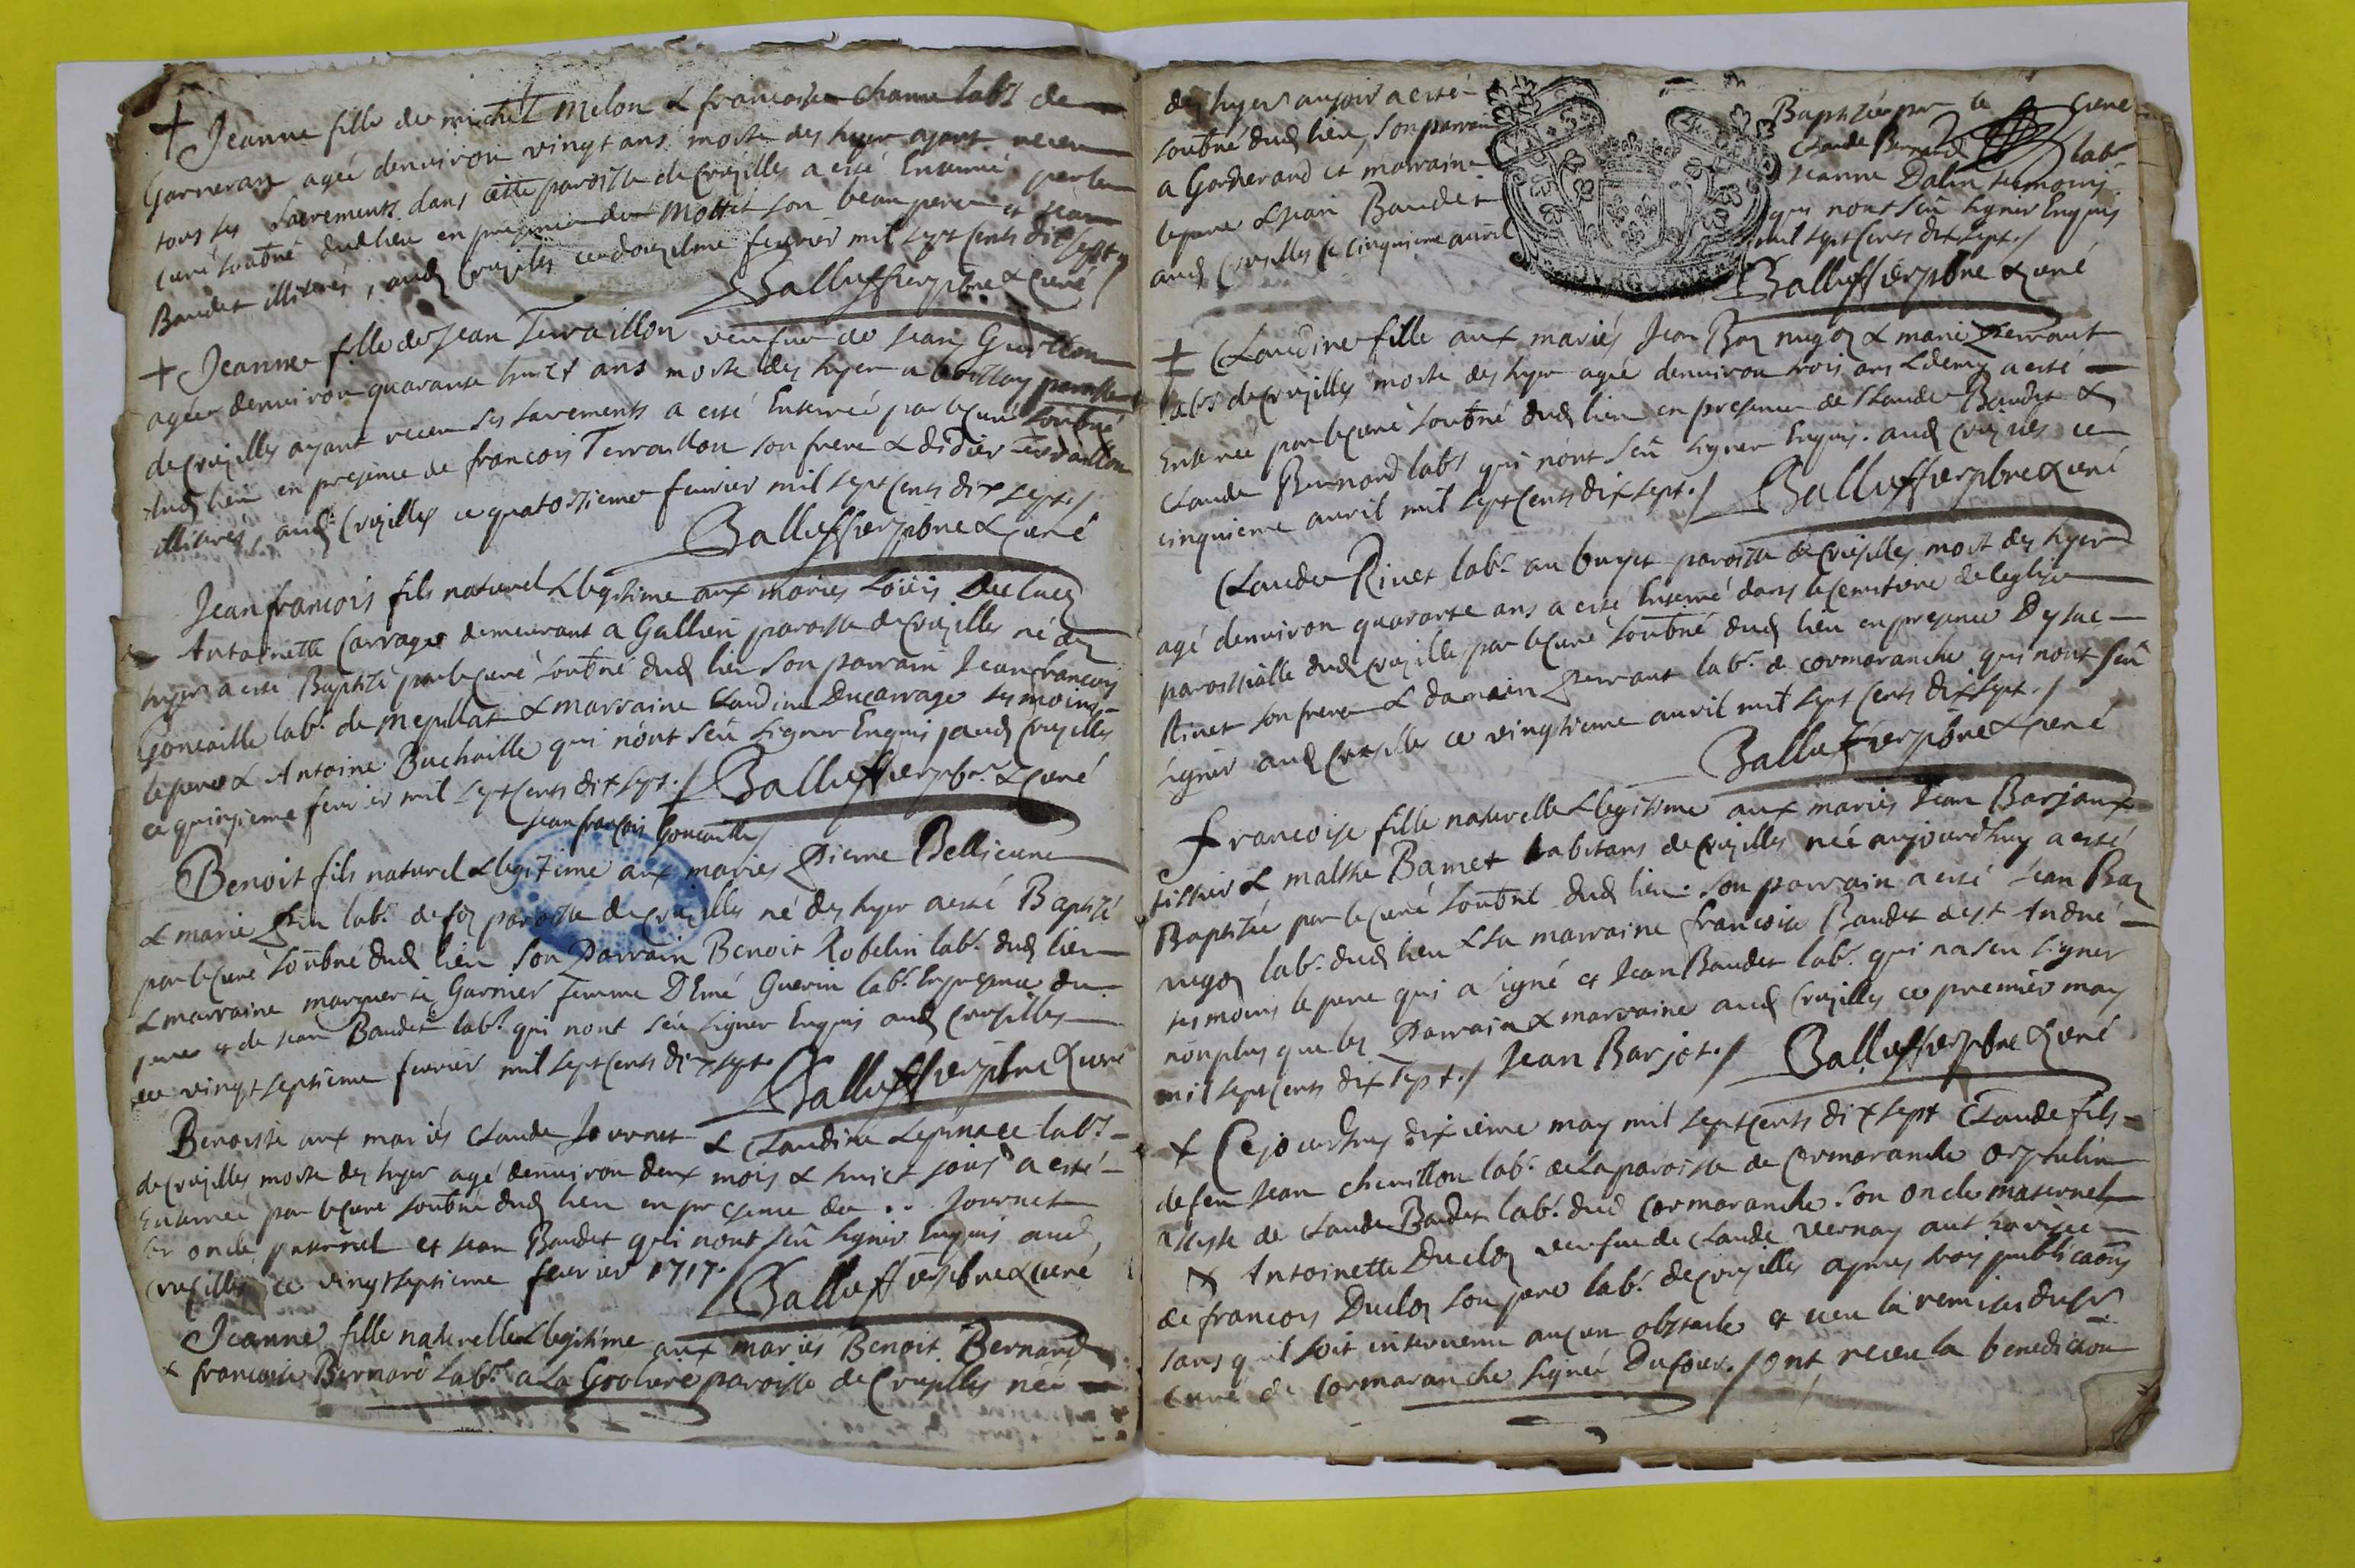 + Jeanne fille de michel Melon & francoise Channe labrs de
Garnerans agée denuiron vingt ans morte des hyer ayant receu
tous ses sacrements dans cette paroisse de Crusilles a esté Enterrée par le
curé soubné dud lieu en presence de Mottet son beau pere et Jean
Baudet illiterés, aud Crusilles ce douzieme feurier mil sept cents dix sept
Balluffier pbre & curé
+ Jeanne fille de Jean Terraillon veufue de Jean
agée denuiron quarante huict ans morte des hyer a paroisse
de Crusilles ayant receu ses sacrements a esté Enterrée par le curé soubné
dud lieu en presence de francois Terraillon son frere & didier Terraillon
illiterés, aud Crusilles ce quatorzieme feurier mil sept cents dix sept./
Balluffier pbre & curé
Jeanfrancois fils naturel & legitime aux mariés Loüis
Antoinette Carrage demeurant a Gallien paroisse de Crusilles né des
hyer a esté Baptizé par le curé soubné dud lieu son parrain Jeanfrancois
Goncaille labr. de mepillat & marraine Claudine Ducarrage tesmoins
le pere & Antoine Buchaille qui n'ont sceu signer Enquis aud Crusilles
ce quinzieme feurier mil sept cents dix sept./ Balluffier pbre & curé
Jeanfrançois Goncaille/
Benoit fils naturel & legitime aux mariés Pierre Bellicune
& marie labr. de paroisse de Crusilles né des hyer a esté Baptizé
par le curé soubné dud lieu son Parrain Benoit Robelin labr. dud lieu
& marraine marguerite Garnier femme D'Emé Guerin labr. En presence du
pere et de Jean Baudet labr. qui n'ont sceu signer Enquis aud Crusilles
ce vingt septieme feurier mil sept cents dix sept.
Balluffier pbre & curé
Benoiste aux mariés Claude Journet & Claudine Lepinace labrs
de Crusilles morte des hyer agé denuiron deux mois & huict jours a esté
Enterrée par le curé soubné dud lieu en presence de .. Journet
son oncle paternel et Jean Baudet qui n'ont sceu signer Enquis aud
Crusilles ce vingt septieme feurier 1717.
Balluffier pbre & curé
Jeanne fille naturelle & legitime aux mariés Benoit Bernard
& francoise Bernard labrs a La Groliere paroisse de Crusilles née
des hyer au soir a esté Baptizée par le Curé
soubné dud lieu, son parrain Claude Bernard labr.
a Garnerand et marraine Jeanne Dalin tesmoins
le pere & Jean Baudet qui n'ont sceu signer Enquis
aud Crusilles ce cinquieme auril mil sept cents dix sept./
Balluffier pbre & curé
+ Claudine fille aux mariés Jean & marie Perraut
labrs de Crusilles morte des hyer agée denuiron trois ans & demy a esté
Enterrée par le curé soubné dud lieu en presence de Claude Baudet &
Claude Bernard labrs qui n'ont sceu signer Enquis. aud Crusilles ce
cinquieme auril mil sept cents dix sept./ Balluffier pbre & curé
Claude Rivet labr. au buyet paroisse de Crusilles mort des hyer
agé denuiron quarante ans a esté Enterré dans le cemitiere de leglise
paroissialle dud Crusilles par le curé soubné dud lieu en presence Dysac
Rivet son frere & damain Perraut labr. de cormoranche qui n'ont sceu
signer aud Crusilles ce vingtieme auril mil sept cents dix sept./
Balluffier pbre & curé
Francoise fille naturelle & legitime aux mariés Jean Barjaux
tissier & malthe Bamet habitans de Crusilles née aujourdhuy a esté
Baptizée par le curé soubné dud lieu. Son parrain a esté Jean
labr. dud lieu & sa marraine francoise Baudet dest André
tesmoins le pere qui a signé et Jean Baudet labr. qui na sceu signer
non plus que les Parrain & marraine aud Crusilles ce premier may
mil sept cents dix sept./ Jean Barjot./ Balluffier pbre & curé
+ Cejourdhuy dixieme may mil sept cents dix sept Claude fils
de feu Jean cheuillon labr. de la paroisse de Cormoranche orphelin
assisté de Claude Baudet labr. dud Cormoranche son oncle maternel
& Antoinette Duclos veufue de Claude Vernay
de francois Duclos son pere labr. de Crusilles apres trois publicaons
sans quil soit interuenu aucun obstacle et ueu la remise du Sr
curé de Cormoranche signée Dufour./ ont receu la benediction